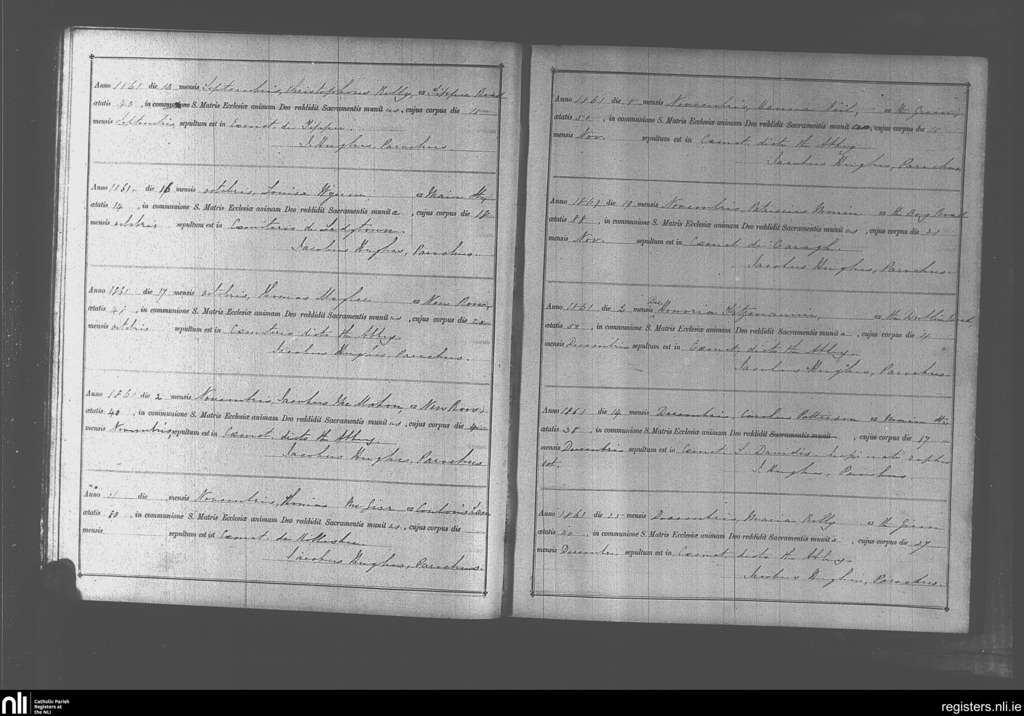 Anno 1861 die 10 mensis Septembris, Christophorus Kelly, ex Tipper Road
ætatis 40, in communione S. Matris Ecclesiæ animam Deo reddidit Sacramentis munitus, cujus corpus die 12
mensis Septembris sepultum est in Cœmet. de Tipper
J. Hughes, Parochus.
Anno 1861 die 16 mensis octobris, Louisa ex Main St.
ætatis 14, in communione S. Matris Ecclesiæ animam Deo reddidit Sacramentis munita, cujus corpus die 18
mensis octobris sepultum est in Cœmeterio de Ladytown.
Jacobus Hughes, Parochus.
Anno 1861 die 17 mensis octobris, Thomas ex New Row
ætatis 41, in communione S. Matris Ecclesiæ animam Deo reddidit Sacramentis munitus, cujus corpus die 20
mensis octobris sepultum est in Cœmeterio dicto the Abbey
Jacobus Hughes, Parochus.
Anno 1861 die 2 mensis Novembris Jacobus McMahon, ex New Row
ætatis 40, in communione S. Matris Ecclesiæ animam Deo reddidit Sacramentis munitus, cujus corpus die 4
mensis Novembris sepultum est in Cœmet. dicto the Abbey
Jacobus Hughes, Parochus
Anno " die mensis Novembris, Thomas ex
ætatis 80, in communione S. Matris Ecclesiæ animam Deo reddidit Sacramentis munitus, cujus corpus die
mensis sepultum est in Cœmet. de
Jacobus Hughes, Parochus.
Anno 1861 die mensis Novembris, ex the Green,
ætatis 50, in communione S. Matris Ecclesiæ animam Deo reddidit Sacramentis munit, cujus corpus die
mensis Nov. sepultum est in Cœmet. dicto the Abbey
Jacobus Hughes, Parochus
Anno 1861 die 19 mensis Novembris, Patricius ex the Road
ætatis 88, in communione S. Matris Ecclesiæ animam Deo reddidit Sacramentis munitus, cujus corpus die 21
mensis Nov. sepultum est in Cœmet. de Caragh
Jacobus Hughes, Parochus
Anno 1861 die 2 mensis Dec. Honoria ex the
ætatis 50, in communione S. Matris Ecclesiæ animam Deo reddidit Sacramentis munita, cujus corpus die 4
mensis Decembris sepultum est in Cœmet. dicto the Abbey
Jacobus Hughes, Parochus.
Anno 1861 die 14 mensis Decembris, Patterson ex Main St.
ætatis 38, in communione S. Matris Ecclesiæ animam Deo reddidit Sacramentis munit, cujus corpus die 17
mensis Decembris sepultum est in Cœmet. S. Davidis
est.
J. Hughes, Parochus.
Anno 1861 die 25 mensis Decembris, Maria Kelly ex the Green
ætatis 20, in communione S. Matris Ecclesiæ animam Deo reddidit Sacramentis munita, cujus corpus die 27
mensis Decembris sepultum est in Cœmet. dicto the Abbey
Jacobus Hughes, Parochus.
nli Catholic Parish
Registers at
the NLI
registers.nli.ie